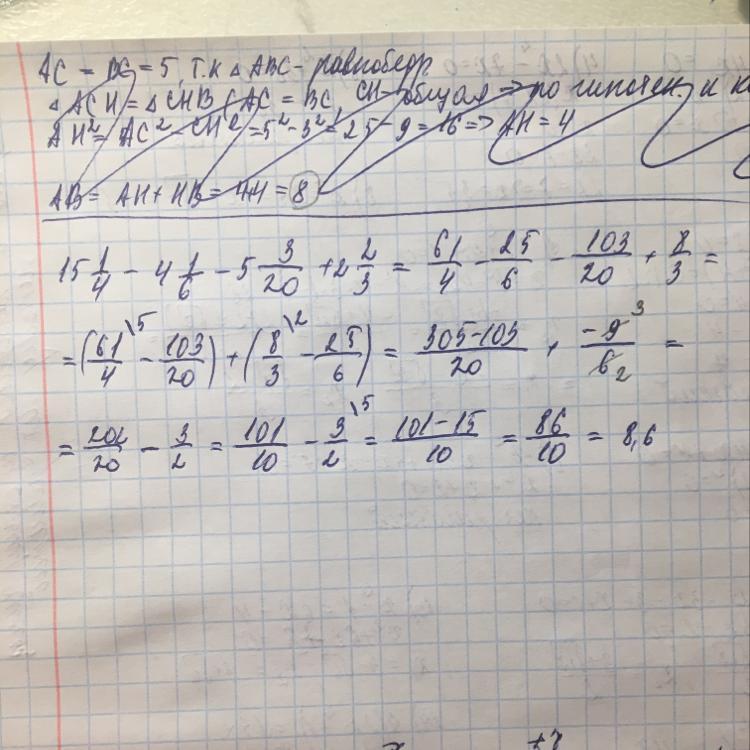 AC = BC = 5, т.к △ ABC - равнобедр
△ ACH = △ CHB (AC = BC, CH - общая => по гипотен. и
AH² = AC² - CH² = 5² - 3² = 25 - 9 = 16 => AH = 4
AB = AH + HB = 4+4 = 8
15 1/4 - 4 1/6 - 5 3/20 + 2 2/3 = 61/4 - 25/6 - 103/20 + 8/3 =
= (61/4 \5 - 103/20) + (8/3 \2 - 25/6) = 305-103/20 + -9/6 3 2 =
= 202/20 - 3/2 = 101/10 - 3/2 \5 = 101-15/10 = 86/10 = 8,6